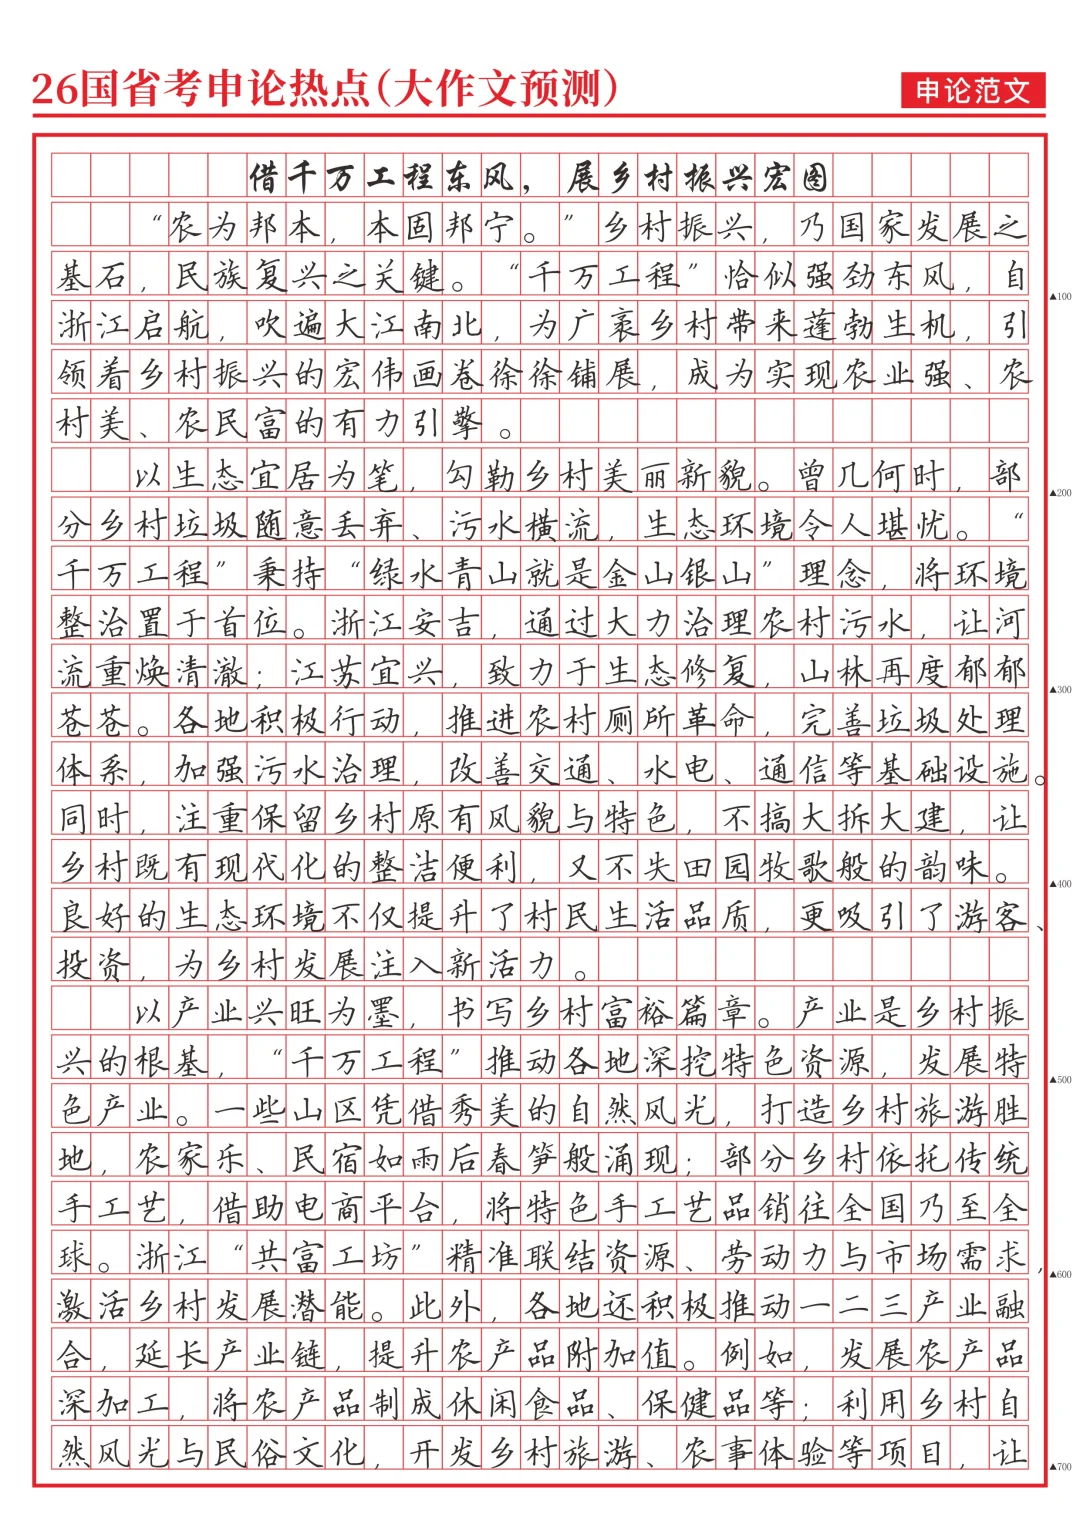 26国省考申论热点（大作文预测）
申论范文
借千万工程东风，展乡村振兴宏图
“农为邦本，本固邦宁。”乡村振兴，乃国家发展之
基石，民族复兴之关键。“千万工程”恰似强劲东风，自
▲100
浙江启航，吹遍大江南北，为广袤乡村带来蓬勃生机，引
领着乡村振兴的宏伟画卷徐徐铺展，成为实现农业强、农
村美、农民富的有力引擎。
以生态宜居为笔，勾勒乡村美丽新貌。曾几何时，部
▲200
分乡村垃圾随意丢弃、污水横流，生态环境令人堪忧。“
千万工程”秉持“绿水青山就是金山银山”理念，将环境
整治置于首位。浙江安吉，通过大力治理农村污水，让河
流重焕清澈；江苏宜兴，致力于生态修复，山林再度郁郁
▲300
苍苍。各地积极行动，推进农村厕所革命，完善垃圾处理
体系，加强污水治理，改善交通、水电、通信等基础设施。
同时，注重保留乡村原有风貌与特色，不搞大拆大建，让
乡村既有现代化的整洁便利，又不失田园牧歌般的韵味。
▲400
良好的生态环境不仅提升了村民生活品质，更吸引了游客、
投资，为乡村发展注入新活力。
以产业兴旺为墨，书写乡村富裕篇章。产业是乡村振
兴的根基，“千万工程”推动各地深挖特色资源，发展特
▲500
色产业。一些山区凭借秀美的自然风光，打造乡村旅游胜
地，农家乐、民宿如雨后春笋般涌现；部分乡村依托传统
手工艺，借助电商平台，将特色手工艺品销往全国乃至全
球。浙江“共富工坊”精准联结资源、劳动力与市场需求，
▲600
激活乡村发展潜能。此外，各地还积极推动一二三产业融
合，延长产业链，提升农产品附加值。例如，发展农产品
深加工，将农产品制成休闲食品、保健品等；利用乡村自
然风光与民俗文化，开发乡村旅游、农事体验等项目，让
▲700